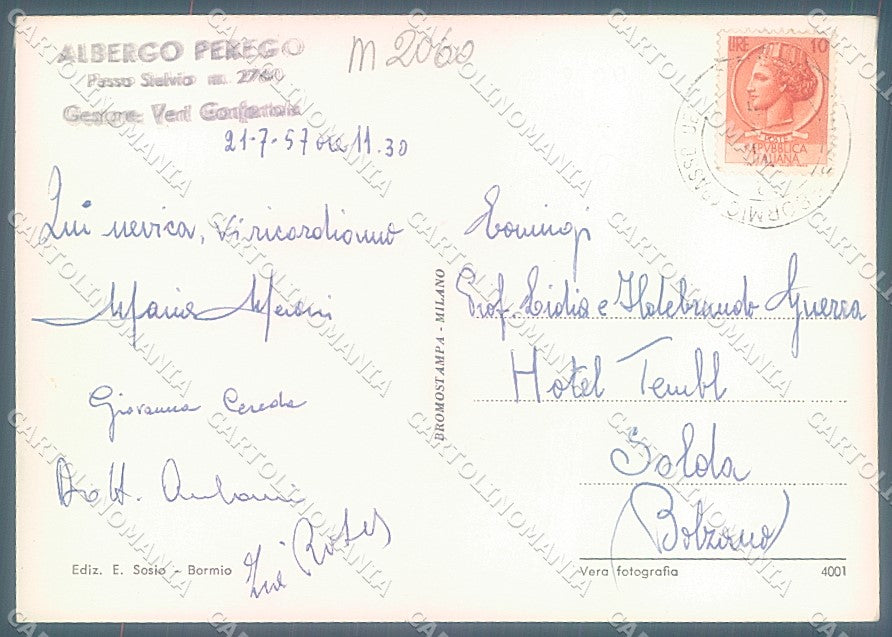 ALBERGO PEREGO
Passo Stelvio m. 2760
Gestore: Veri Confortola
m 2060
21-7-57 ore 11.30
Qui nevica, Vi ricordiamo
Maria Meroni
Giovanna Cereda
Dott.
Ediz. E. Sosio - Bormio
BROMOSTAMPA - MILANO
LIRE 10
POSTE
REPVBBLICA
ITALIANA
BORMIO
Coniugi
Prof. Lidia e Ildebrando Guerra
Hotel Tembl
Solda
(Bolzano)
Vera fotografia
4001
CARTOLINOMANIA